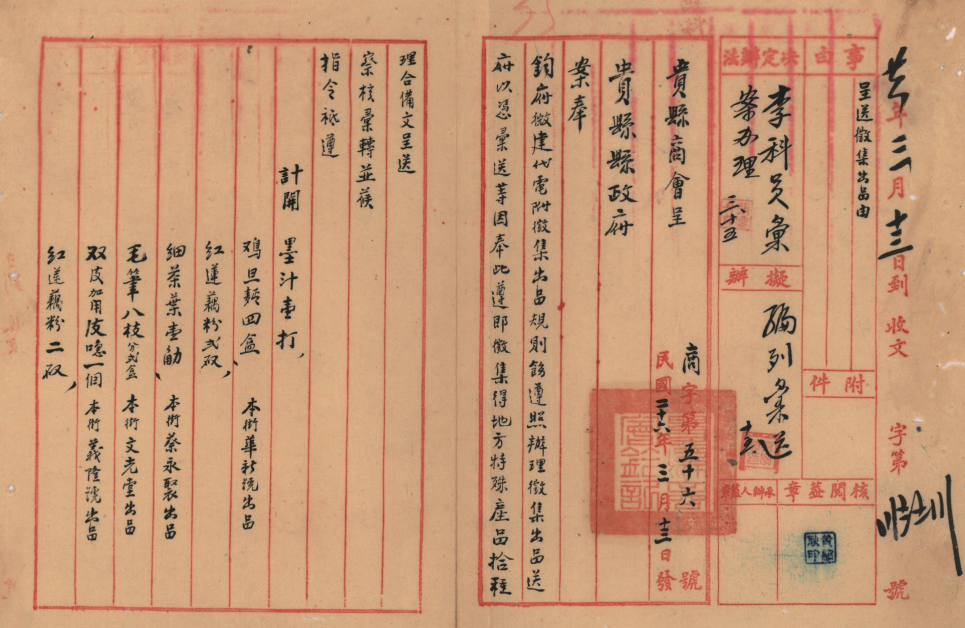 廿六年三月十三日到
收文 字第 號
事由
呈送徵集出品由
附件
決定辦法
李科員彙
案办理
三十五
擬辦
編列彙送
核閱蓋章
承辦人蓋章
貴縣商會呈
商字第五十六號
民國二十六年三月十三日發
貴縣縣政府
案奉
鈞府微建代電附徵集出品規則飭遵照辦理徵集出品送
府以憑彙送等因奉此遵即徵集得地方特殊產品拾種
理合備文呈送
察核彙轉並候
指令祗遵
計開
墨汁壹打
鸡旦麵四盒 本街華新號出品
紅蓮藕粉弍砃
細茶葉壹觔 本街蔡永聚出品
毛筆八枝分弍盒 本街文光堂出品
双皮加用皮喼一個 本街義隆號出品
紅蓮藕粉二砃